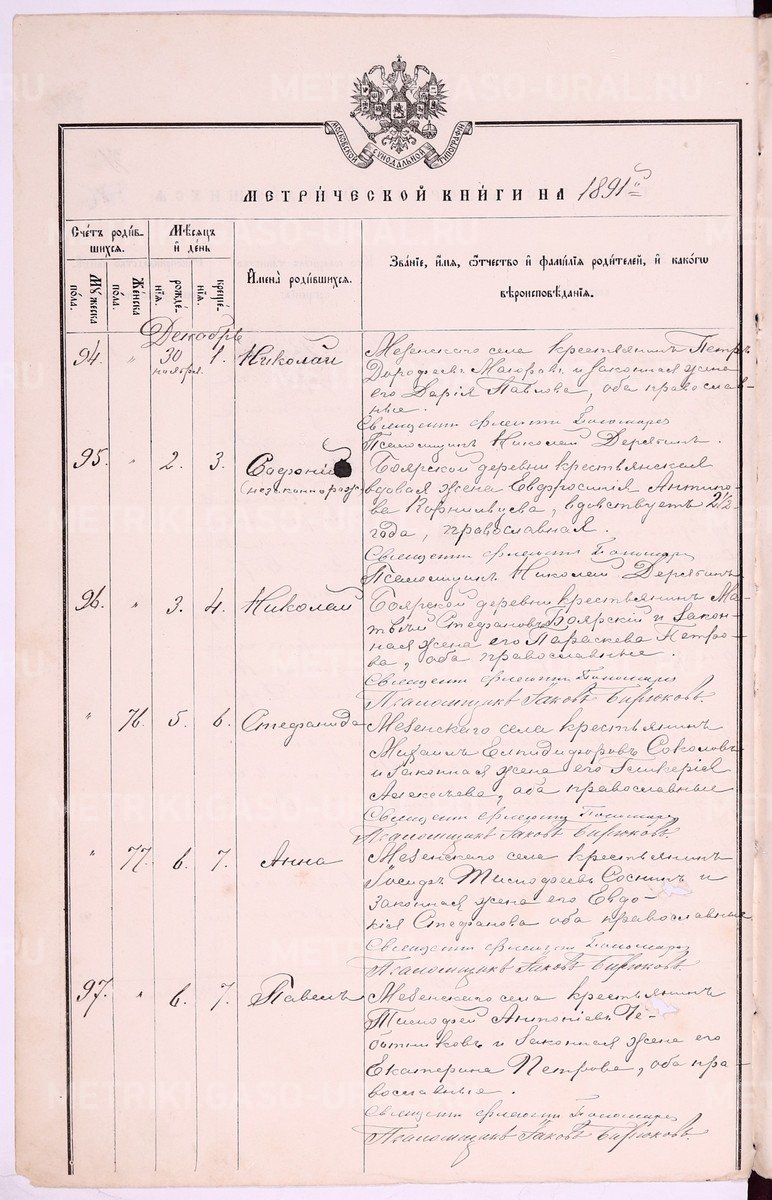 МОСКОВСКОЙ СѴНОДАЛЬНОЙ ТИПОГРАФІИ
МЕТРИ́ЧЕСКОЙ КНИ́ГИ НА 1891й
Сче́тъ роди́вшихся.
Мѣ́сяцъ и́ де́нь
Мꙋ́жеска по́ла.
Же́нска по́ла.
рожде́нїѧ.
креще́нїѧ.
И҆мена̀ роди́вшихся.
Зва́нїе, и҆́мѧ, ѻ҆́тчество и҆ фами́лїѧ роди́телей, и҆ како́гѡ
вѣроисповѣ́данїѧ.
Декабрь
94. " 30 ноября 1. Николай
Мезенскаго села крестьянинъ Петръ
Дорофеевъ Маюровъ и законная жена
его Дарія Павлова, оба православ-
ные.
Священникъ
Псаломщикъ Николай Дерябинъ.
95. " 2. 3. Софроній (незаконнорож.)
Боярской деревни крестьянская
вдовая жена Евфросинія Антипо-
ва Корнильцева, вдовствуетъ 2½
года, православная.
Священникъ
Псаломщикъ Николай Дерябинъ
96. " 3. 4. Николай
Боярской деревни крестьянинъ Ма-
твѣй Стефановъ Боярскій и закон-
ная жена его Параскева Петро-
ва, оба православные.
Священникъ
Псаломщикъ Іаковъ Бирюковъ.
" 76. 5. 6. Стефанида
Мезенскаго села крестьянинъ
Михаилъ Елпидифоровъ Соколовъ
и законная жена его Гликерія
Алексѣева, оба православные
Священникъ
Псаломщикъ Іаковъ Бирюковъ.
" 77. 6. 7. Анна
Мезенскаго села крестьянинъ
Іосифъ Тимофеевъ Соснинъ и
законная жена его Евдо-
кія Стефанова оба православные
Священникъ
Псаломщикъ Іаковъ Бирюковъ.
97. " 6. 7. Павелъ
Мезенскаго села крестьянинъ
Тимофей Антоніевъ Че-
ботниковъ и законная жена его
Екатерина Петрова, оба пра-
вославные.
Священникъ
Псаломщикъ Іаковъ Бирюковъ.